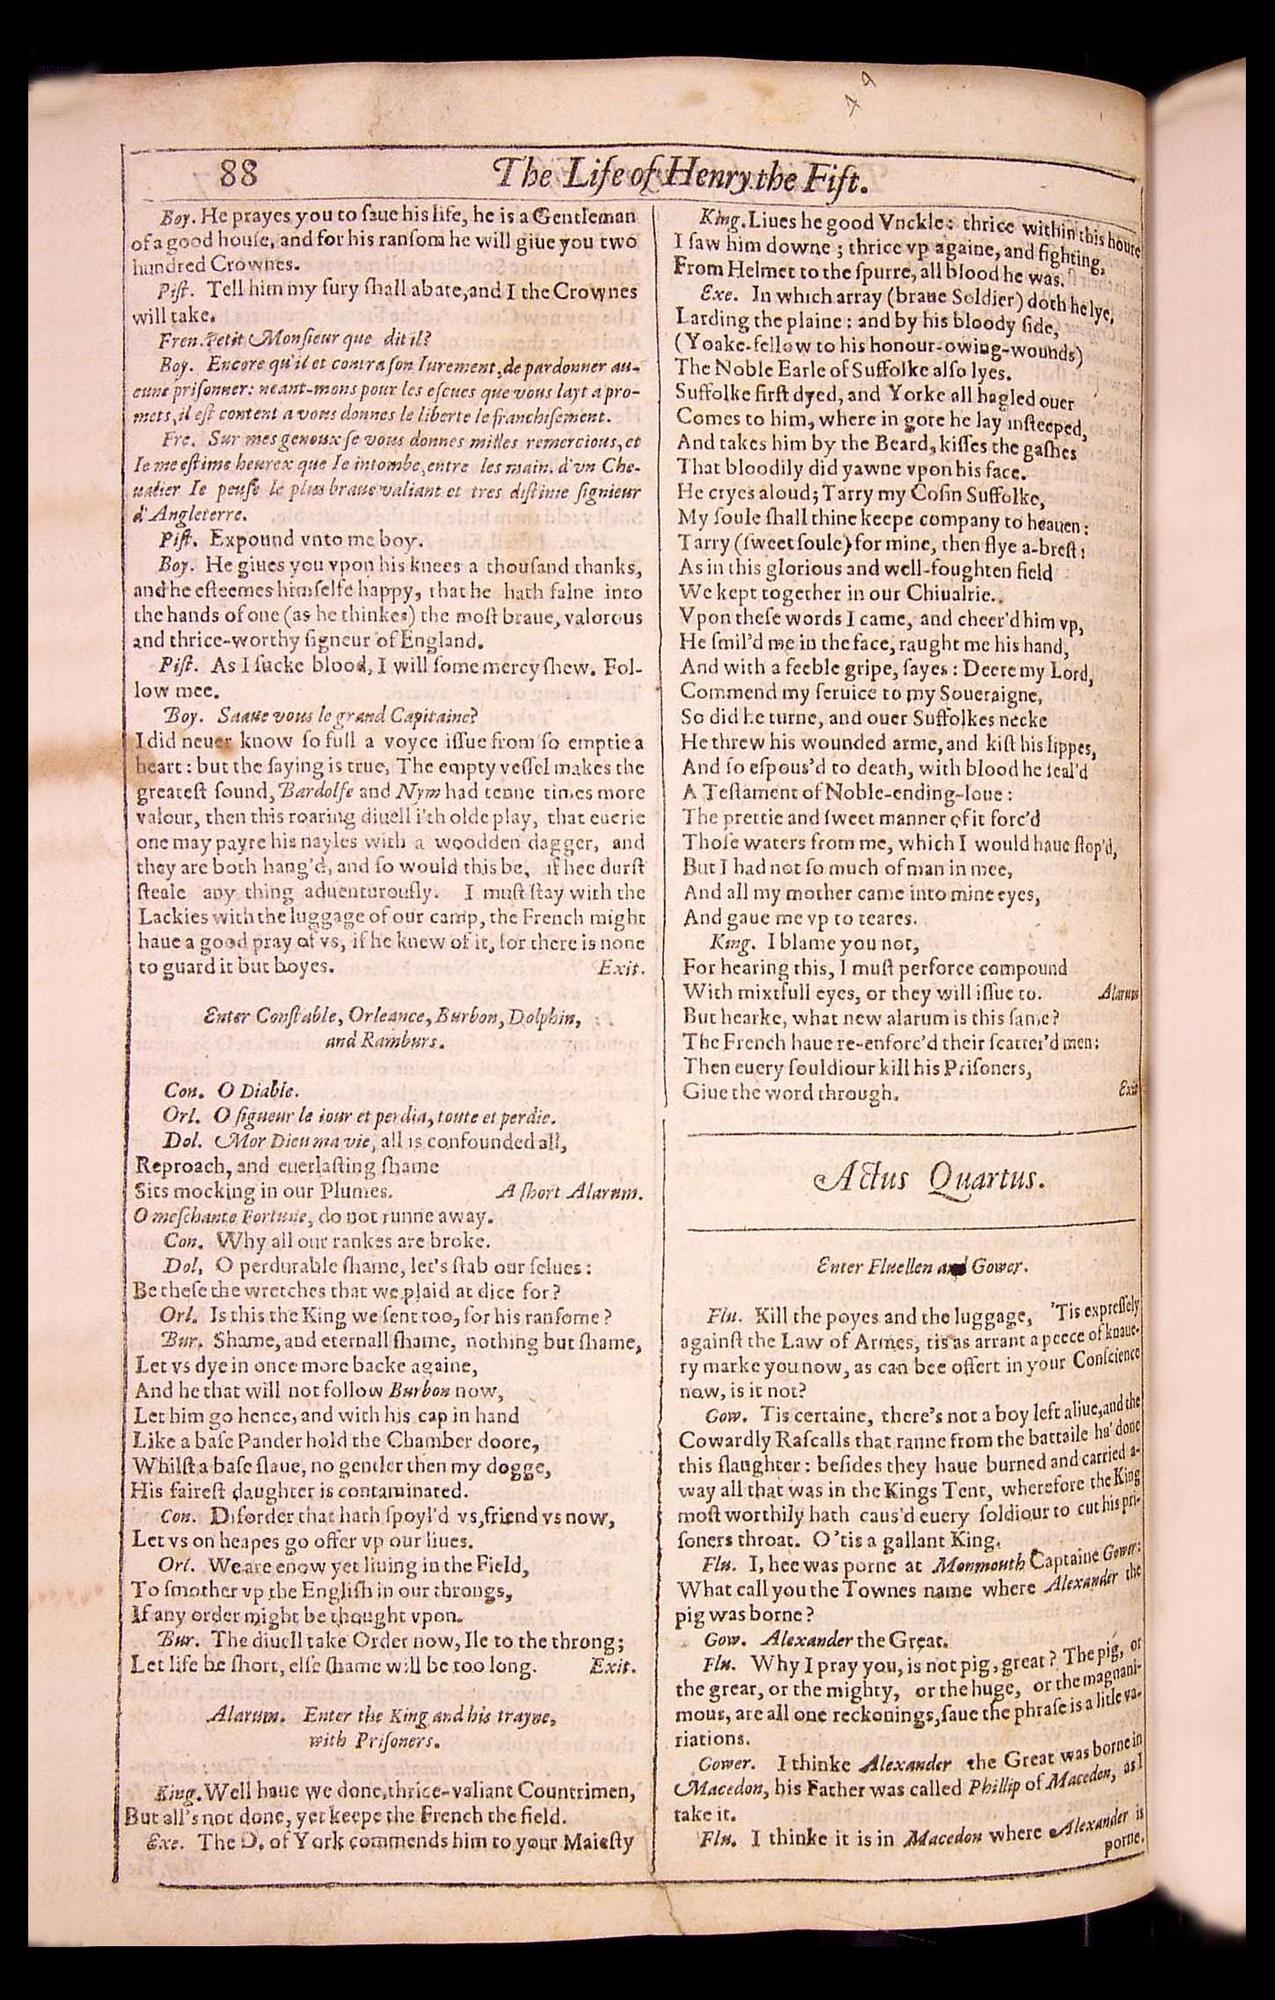 88
The Life of Henry the Fift.
Boy. He prayes you to ſaue his life, he is a Gentleman
of a good houſe, and for his ranſom he will giue you two
hundred Crownes.
Piſt. Tell him my fury ſhall abate, and I the Crownes
will take.
Fren. Petit Monſieur que dit il?
Boy. Encore qu'il et contra ſon Iurement, de pardonner au-
cune priſonner: neant-mons pour les eſcues que vous layt a pro-
mets, il eſt content a vous donnes le liberte le franchiſement.
Fre. Sur mes genoux ſe vous donnes milles remercious, et
Ie me eſtime heurex que Ie intombe, entre les main. d'vn Che-
ualier Ie peuſe le plus braue valiant et tres diſtinie ſignieur
d'Angleterre.
Piſt. Expound vnto me boy.
Boy. He giues you vpon his knees a thouſand thanks,
and he eſteemes himſelfe happy, that he hath falne into
the hands of one (as he thinkes) the moſt braue, valorous
and thrice-worthy ſigneur of England.
Piſt. As I ſucke blood, I will ſome mercy ſhew. Fol-
low mee.
Boy. Saaue vous le grand Capitaine?
I did neuer know ſo full a voyce iſſue from ſo emptie a
heart: but the ſaying is true, The empty veſſel makes the
greateſt ſound, Bardolfe and Nym had tenne times more
valour, then this roaring diuell i'th olde play, that euerie
one may payre his nayles with a woodden dagger, and
they are both hang'd, and ſo would this be, if hee durſt
ſteale any thing aduenturouſly. I muſt ſtay with the
Lackies with the luggage of our camp, the French might
haue a good pray of vs, if he knew of it, for there is none
to guard it but boyes. Exit.
Enter Conſtable, Orleance, Burbon, Dolphin,
and Ramburs.
Con. O Diable.
Orl. O ſigueur le iour et perdia, toute et perdie.
Dol. Mor Dieu ma vie, all is confounded all,
Reproach, and euerlaſting ſhame
Sits mocking in our Plumes. A ſhort Alarum.
O meſchante Fortune, do not runne away.
Con. Why all our rankes are broke.
Dol. O perdurable ſhame, let's ſtab our ſelues:
Be theſe the wretches that we plaid at dice for?
Orl. Is this the King we ſent too, for his ranſome?
Bur. Shame, and eternall ſhame, nothing but ſhame,
Let vs dye in once more backe againe,
And he that will not follow Burbon now,
Let him go hence, and with his cap in hand
Like a baſe Pander hold the Chamber doore,
Whilſt a baſe ſlaue, no gentler then my dogge,
His faireſt daughter is contaminated.
Con. Diſorder that hath ſpoyl'd vs, friend vs now,
Let vs on heapes go offer vp our liues.
Orl. We are enow yet liuing in the Field,
To ſmother vp the Engliſh in our throngs,
If any order might be thought vpon.
Bur. The diuell take Order now, Ile to the throng;
Let life be ſhort, elſe ſhame will be too long. Exit.
Alarum. Enter the King and his trayne,
with Priſoners.
King. Well haue we done, thrice-valiant Countrimen,
But all's not done, yet keepe the French the field.
Exe. The D. of York commends him to your Maieſty
King. Liues he good Vnckle: thrice within this houre
I ſaw him downe; thrice vp againe, and fighting,
From Helmet to the ſpurre, all blood he was.
Exe. In which array (braue Soldier) doth he lye,
Larding the plaine: and by his bloody ſide,
(Yoake-fellow to his honour-owing-wounds)
The Noble Earle of Suffolke alſo lyes.
Suffolke firſt dyed, and Yorke all hagled ouer
Comes to him, where in gore he lay inſteeped,
And takes him by the Beard, kiſſes the gaſhes
That bloodily did yawne vpon his face.
He cryes aloud; Tarry my Coſin Suffolke,
My ſoule ſhall thine keepe company to heauen:
Tarry (ſweet ſoule) for mine, then flye a-breſt:
As in this glorious and well-foughten field
We kept together in our Chiualrie.
Vpon theſe words I came, and cheer'd him vp,
He ſmil'd me in the face, raught me his hand,
And with a feeble gripe, ſayes: Deere my Lord,
Commend my ſeruice to my Soueraigne,
So did he turne, and ouer Suffolkes necke
He threw his wounded arme, and kiſt his lippes,
And ſo eſpous'd to death, with blood he ſeal'd
A Teſtament of Noble-ending-loue:
The prettie and ſweet manner of it forc'd
Thoſe waters from me, which I would haue ſtop'd,
But I had not ſo much of man in mee,
And all my mother came into mine eyes,
And gaue me vp to teares.
King. I blame you not,
For hearing this, I muſt perforce compound
With mixtfull eyes, or they will iſſue to. Alarum
But hearke, what new alarum is this ſame?
The French haue re-enforc'd their ſcatter'd men:
Then euery ſouldiour kill his Priſoners,
Giue the word through. Exit
Actus Quartus.
Enter Fluellen and Gower.
Flu. Kill the poyes and the luggage, 'Tis expreſſely
againſt the Law of Armes, tis as arrant a peece of knaue-
ry marke you now, as can bee offert in your Conſcience
now, is it not?
Gow. Tis certaine, there's not a boy left aliue, and the
Cowardly Raſcalls that ranne from the battaile ha' done
this ſlaughter: beſides they haue burned and carried a-
way all that was in the Kings Tent, wherefore the King
moſt worthily hath caus'd euery ſoldiour to cut his pri-
ſoners throat. O 'tis a gallant King.
Flu. I, hee was porne at Monmouth Captaine Gower:
What call you the Townes name where Alexander the
pig was borne?
Gow. Alexander the Great.
Flu. Why I pray you, is not pig, great? The pig, or
the grear, or the mighty, or the huge, or the magnani-
mous, are all one reckonings, ſaue the phraſe is a litle va-
riations.
Gower. I thinke Alexander the Great was borne in
Macedon, his Father was called Phillip of Macedon, as I
take it.
Flu. I thinke it is in Macedon where Alexander is
porne.